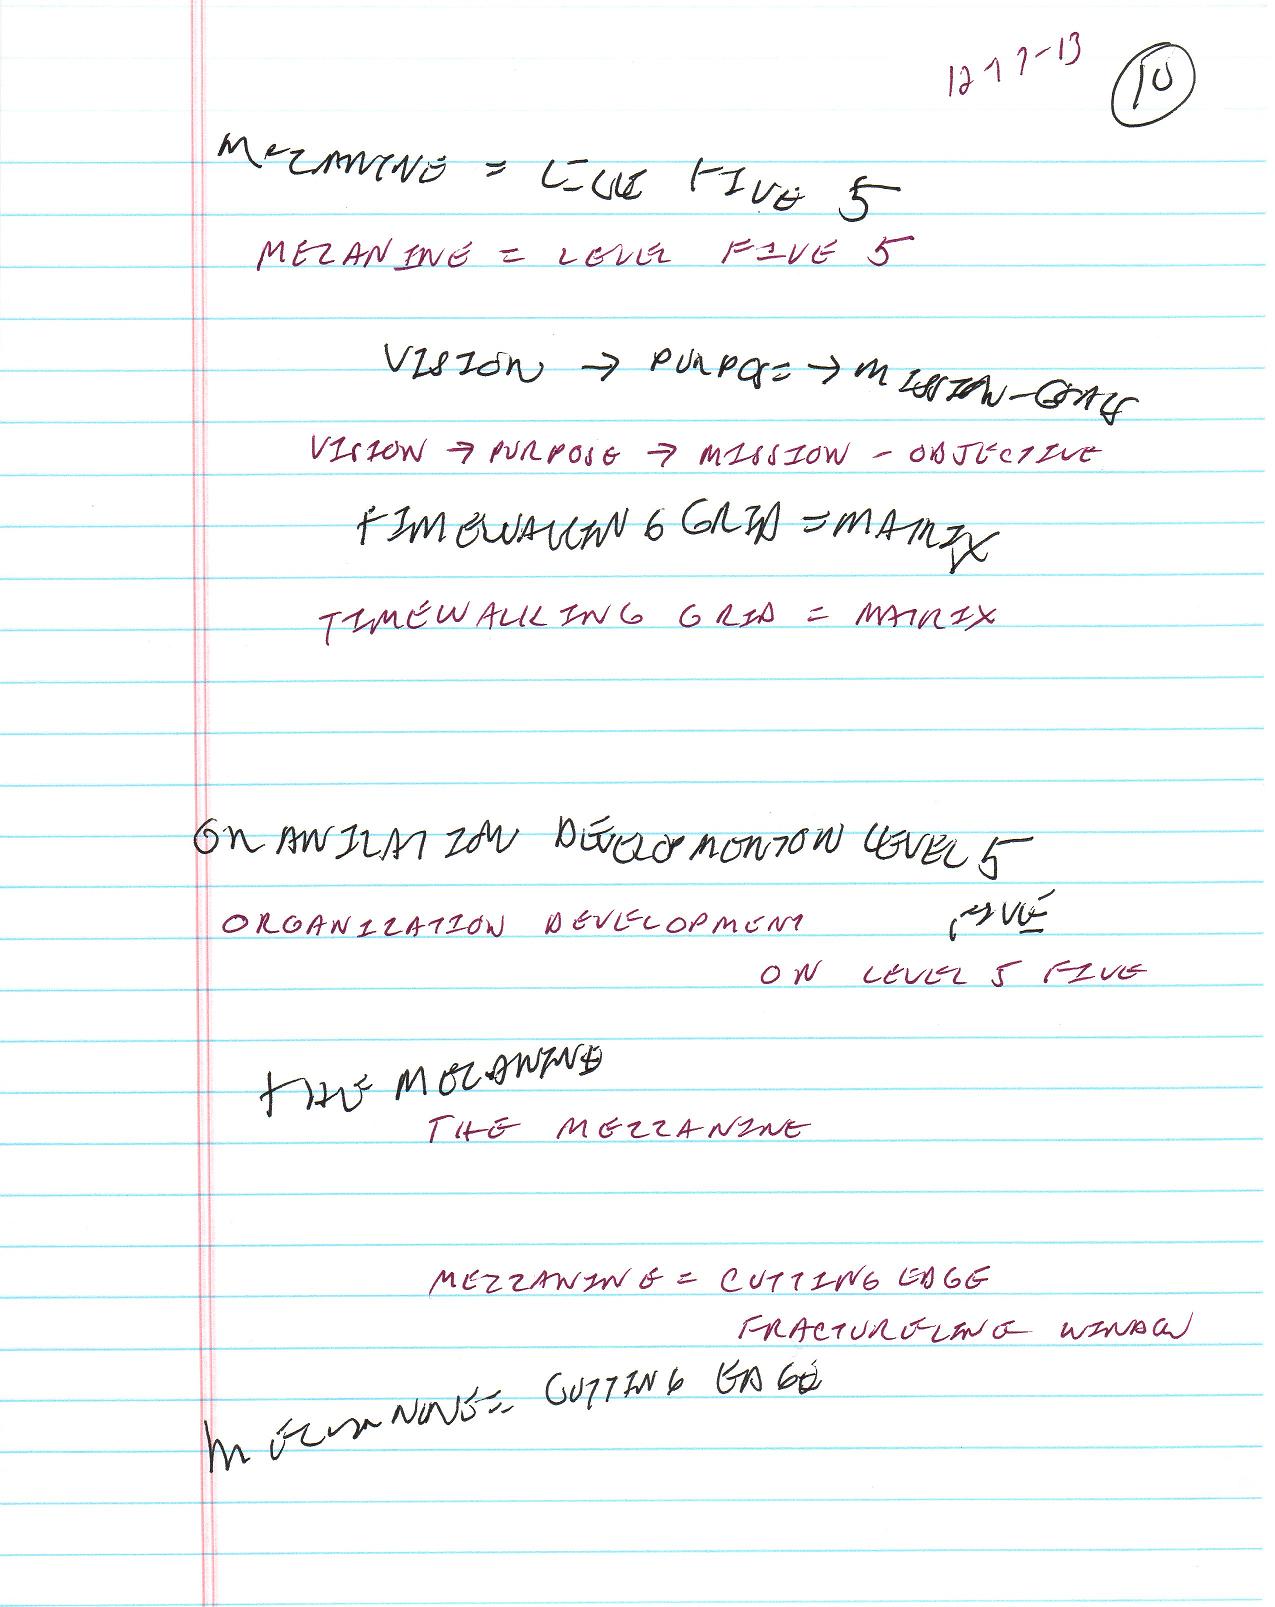 12 17-13 10
MEZANINE = LEVE FIVE 5
MEZANINE = LEVEL FIVE 5
VISION → PURPOSE → MISSION-GOALS
VISION → PURPOSE → MISSION - OBJECTIVE
TIMEWALKIN G GRID = MATRIX
TIMEWALKING GRID = MATRIX
ORANIZATION DEVELOPMENTON LEVEL 5
FIVE
ORGANIZATION DEVELOPMENT
ON LEVEL 5 FIVE
THE MEZANINE
THE MEZZANINE
MEZZANINE = CUTTING EDGE
FRACTURELINE WINDOW
= CUTTING EDGE